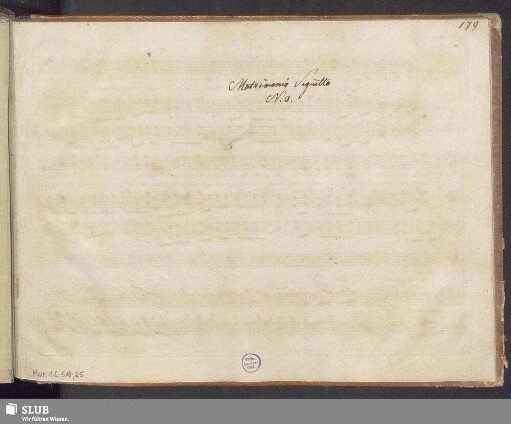 179
Matrimonio Segretto
N. 9.
Mus. 1.C.58,25
SLUB
Wir führen Wissen.